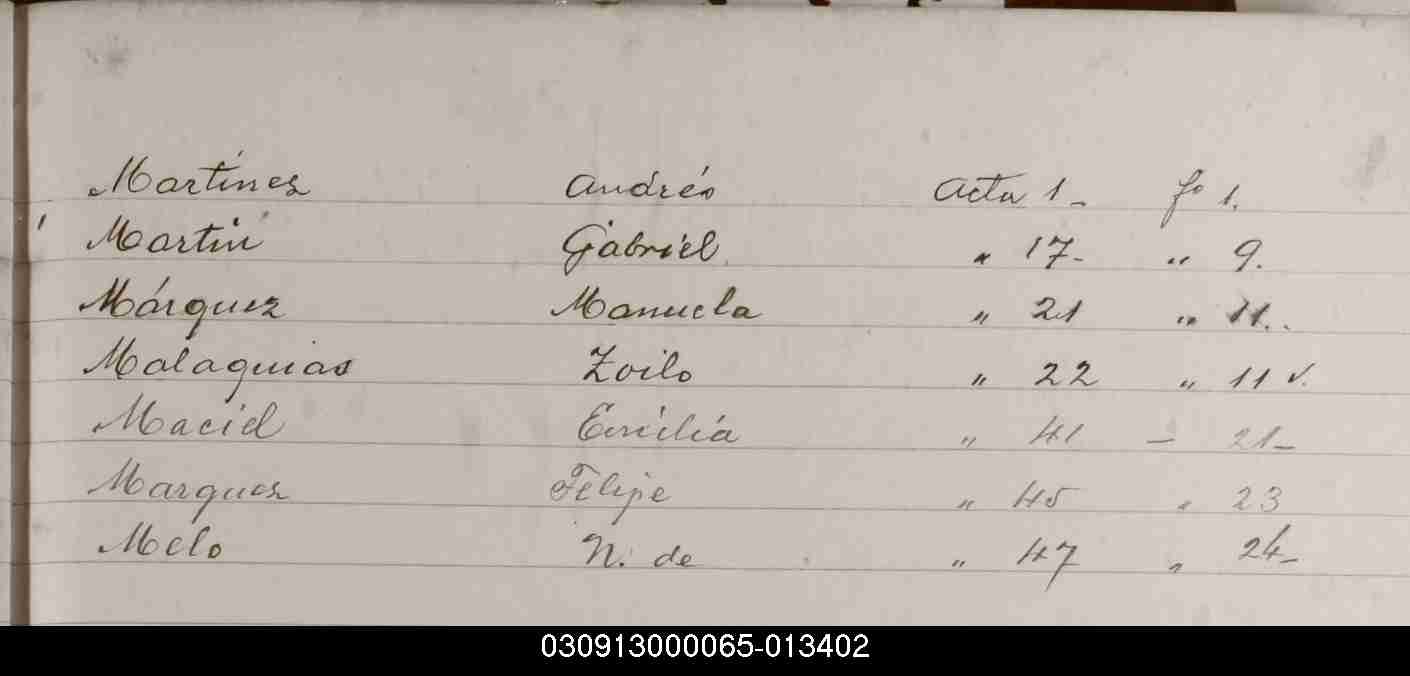 Martínez Andrés Acta 1- fo 1.
Martin Gabriel " 17- " 9.
Márquez Manuela " 21 " 11..
Malaquias Zoilo " 22 " 11 v.
Maciel Emilia " 41 - 21-
Marquez Felipe " 45 " 23
Melo N. de " 47 " 24-
030913000065-013402